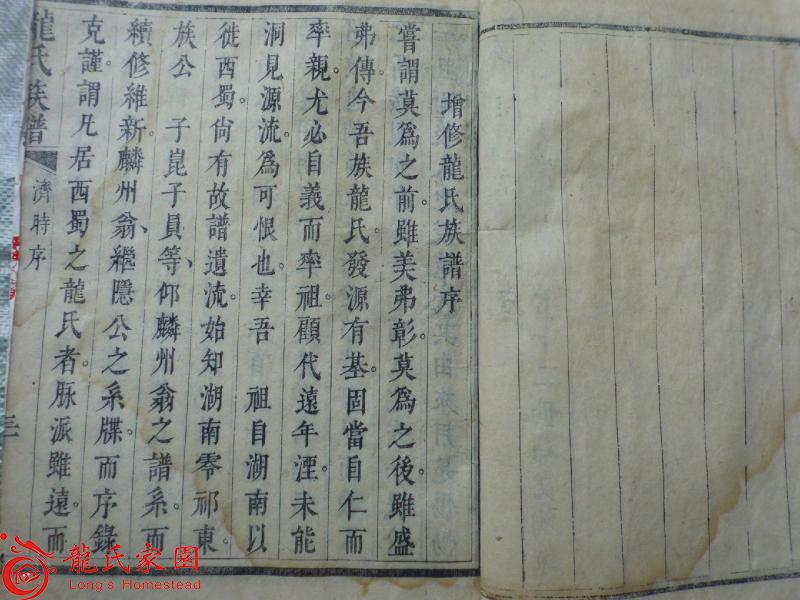 增修龍氏族譜序
嘗謂莫爲之前。雖美弗彰。莫爲之後。雖盛
弗傳。今吾族龍氏。發源有基。固當自仁而
率親。尤必自義而率祖。顧代遠年湮。未能
洞見源流。爲可恨也。幸吾 祖自湖南以
徙西蜀。尙有故譜遺流。始知湖南零祁東。
族公 子崑子員等、仰麟州翁之譜系。而
續修維新。麟州翁、繼隱公之系牒。而序錄
克謹。謂凡居西蜀之龍氏者。脉派雖遠。而
龍氏族譜 濟時序 三
龍氏家園
Long's Homestead